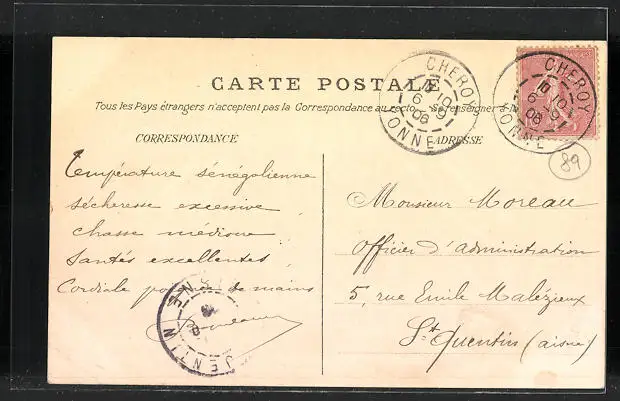 CARTE POSTALE
Tous les Pays étrangers n'acceptent pas la Correspondance au recto. Se renseigner à
CORRESPONDANCE
Température sénégalienne
sécheresse excessive
chasse médiocre
Santés excellentes
Cordiale poignée de mains
ADRESSE
Monsieur Moreau
Officier d'administration
5, rue Emile Malézieux
St Quentin (aisne)
CHEROY
YONNE
CHEROY
YONNE
89